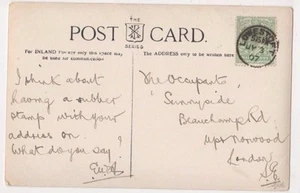 THE
POST CARD.
SERIES
For INLAND Postage only this space may
be used for communication.
The ADDRESS only to be written here
I think about
having a rubber
stamp with your
address on.
What do you say?
The Occupants
"Sunnyside"
Beauchamp Rd.
Upr Norwood
London
S.E.
07